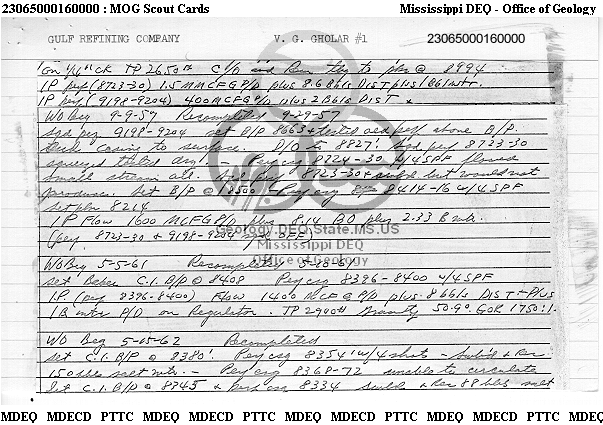 23065000160000 : MOG Scout Cards Mississippi DEQ - Office of Geology
GULF REFINING COMPANY V. G. GHOLAR #1 23065000160000
on 1/4" CK TP 2650# C/O and Ran tbg to pkr @ 8994
IP perf (8723-30) 1.5 MMCFGP/D plus 8.6 Bbls Dist plus 1 Bbl wtr.
IP perf (9198-9204) 400 MCFGP/D plus 2 Bbls DIST.
WO Beg 9-9-57 Recompleted 9-29-57
sqd perf 9198-9204 set B/P 8663 & tested csd perf above B/P.
casing to surface. D/O to 8827! Sqd perf 8723-30
squeezed tested dry! - Perf csg 8724-30 w/4 SPF flowed
small stream oil. perf 8723-30 & swbd but would not
produce. Set B/P @ 8500 - Perf csg 8414-16 w/4 SPF
set pkr 8214
IP Flow 1600 MCFGP/D plus 8.14 BO plus 2.33 B wtr.
(perf 8723-30 & 9198-9204 OFF)
Geology.DEQ.State.MS.US
Mississippi DEQ
Office of Geology
WO Beg 5-5-61 Recompleted 5-18-61
set Baker C.I. B/P @ 8408 Perf csg 8396-8400 w/4 SPF
IP. (perf 8396-8400) Flow 1400 MCFGP/D plus .8 bbls DIST plus
1 B wtr P/D on Regulator. TP 2900# Gravity 50.9° GOR 1750:1.
WO Beg 5-15-62 Recompleted
set C.I. B/P @ 8380! Perf csg 8354' w/4 shots - Swb'd & Rec
150 bbls salt wtr. - Perf csg 8368-72 unable to circulate
Set C.I. B/P @ 8345 & Perf csg 8334 swbd & Rec 88 bbls salt
MDEQ MDECD PTTC MDEQ MDECD PTTC MDEQ MDECD PTTC MDEQ MDECD PTTC MDEQ